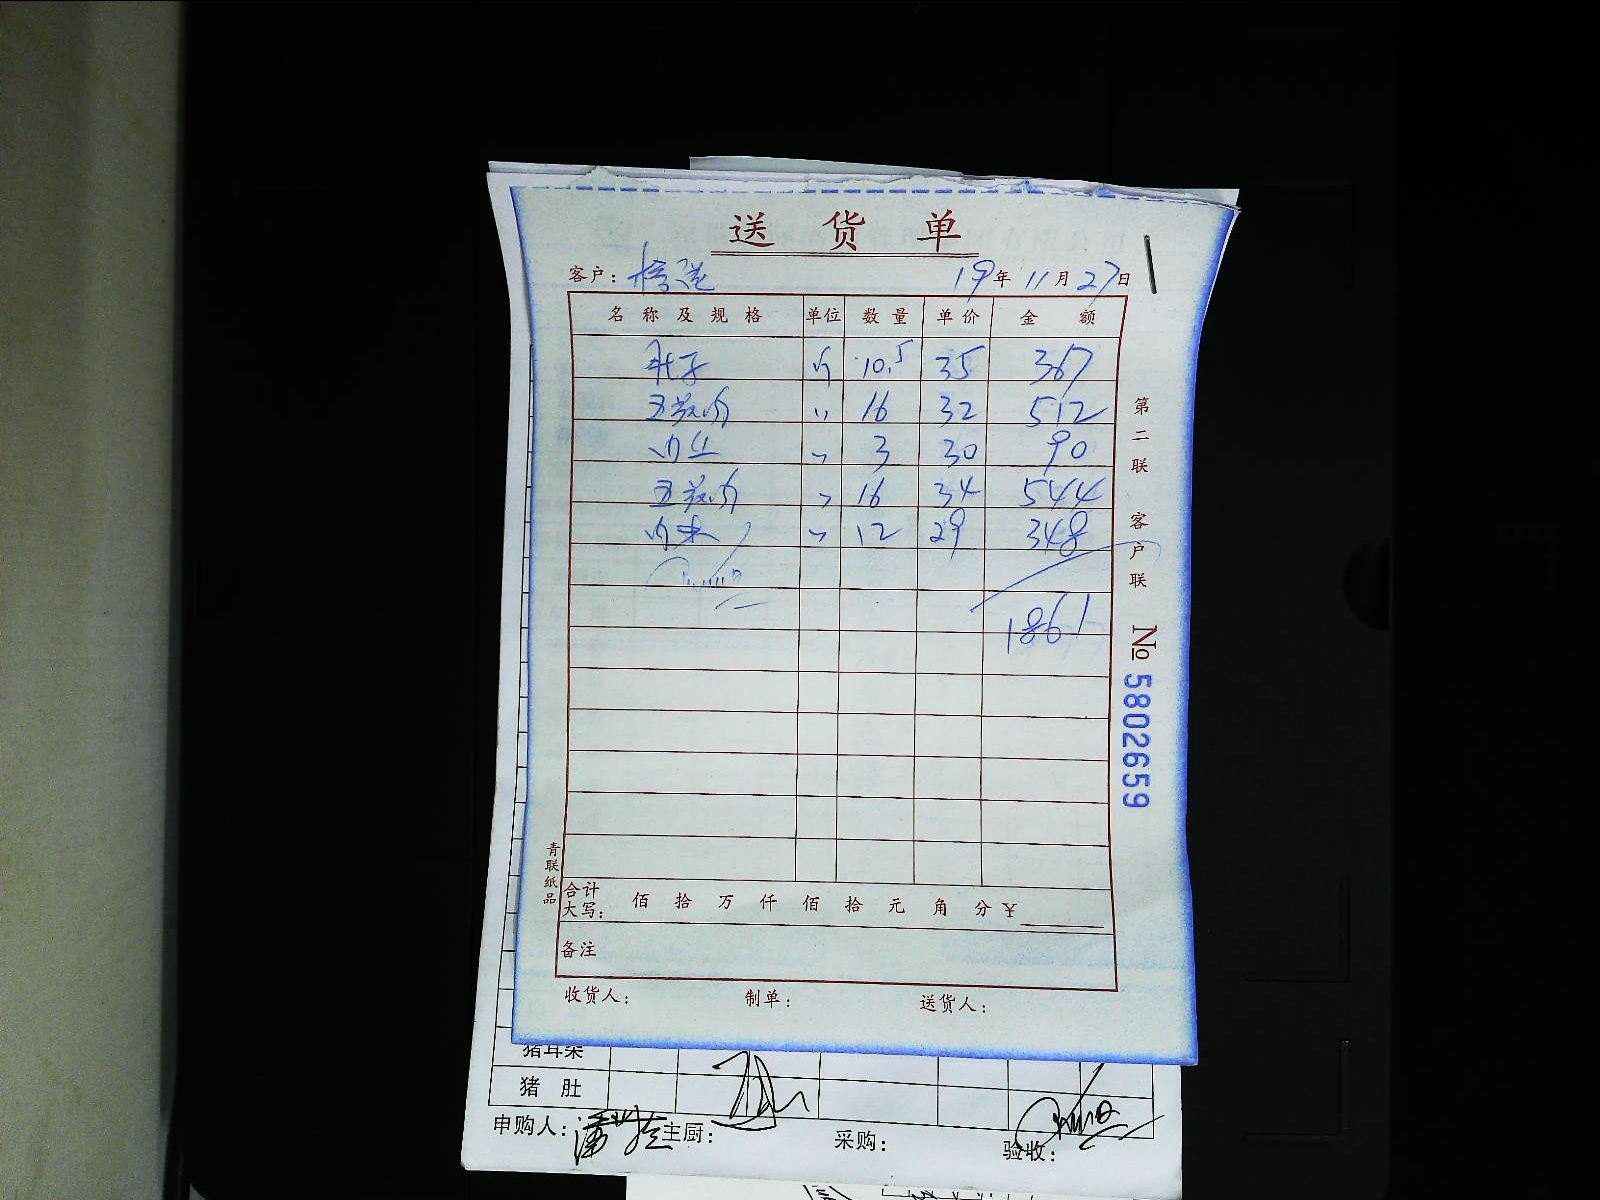 送 货 单
客户： 19年 11月 27日
名 称 及 规 格 单位 数 量 单 价 金 额
肚子 斤 10.5 35 367
五花肉 〃 16 32 512
肉丝 〃 3 30 90
五花肉 〃 16 34 544
肉末 〃 12 29 348
1861
第二联 客户联
No 5802659
青联纸品
合计大写： 佰 拾 万 仟 佰 拾 元 角 分 ¥
备注
收货人： 制单： 送货人：
猪耳朵
猪 肚
申购人： 主厨： 采购： 验收：